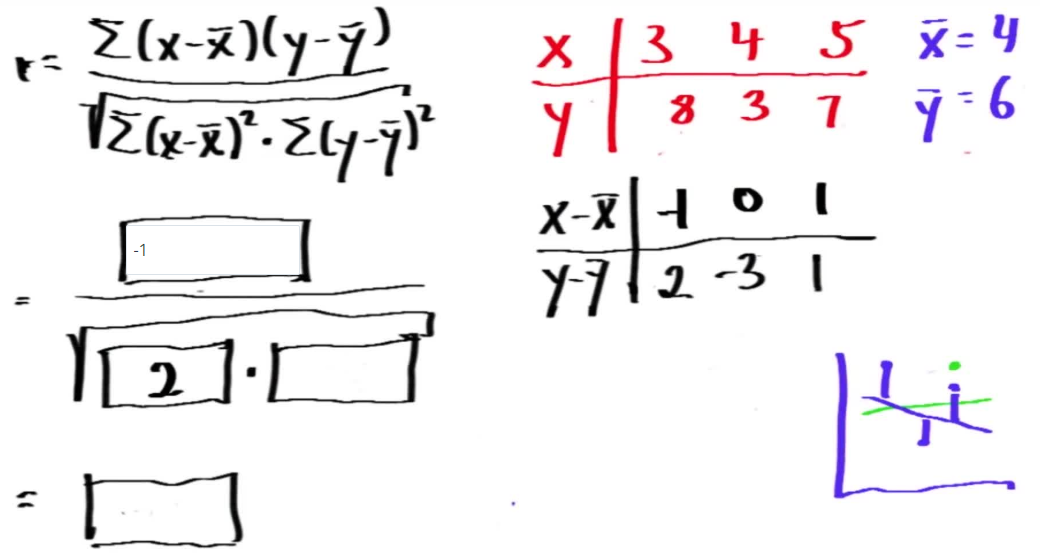 r = Σ(x-x̄)(y-ȳ)
√Σ(x-x̄)² · Σ(y-ȳ)²
= -1
√2 ·
=
x | 3 4 5
y | 8 3 7
x̄ = 4
ȳ = 6
x-x̄ | -1 0 1
y-ȳ | 2 -3 1